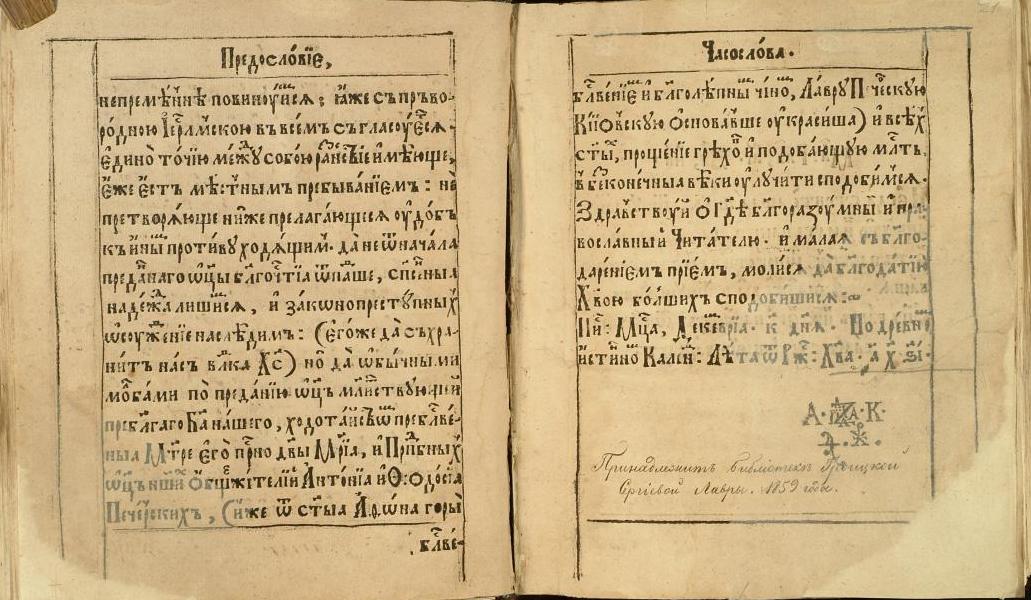 Предословїе,
непремѣннѣ повинуйся: ꙗже съ пръво-
родною Іерлⷭ҇мскою въ всемъ съгласуетсѧ.
едино точїю междꙋ собою имѣюще,
еже естъ мѣстнымъ пребыванїемъ: не
претворяюще ниже прелагающеся оудобъ
къ инымъ противу ходящимъ. да не ѿ начала
преданнаго ѡц҃ы бл҃гочⷭ҇тїя ѿпадше, сп҃сенныѧ
надежда лишимся, и законопреступныхъ
ѡсужденїе наслѣдимъ: (егоже да съхра-
нитъ насъ влⷣка Хс҃) но да ѡбычными
мл҃твами по преданїю ѡц҃ъ млⷭ҇тивствующїй
пребл҃гаго Бг҃а нашего, ходатайствѡ пребл҃гвⷭ҇е-
ныя Мт҃ре его прⷭ҇но дв҃ы Мр҃їа, и Прпⷣбныхъ
ѡц҃ъ нши общежителїй Антонїа и Ѳеодосїа
Печерскихъ, (иже ѿ ст҃ыа Аѳона горы
бл҃гве-
Часослова.
бл҃гвенїе и бл҃голѣпный чинъ, Лавру Пчⷭ҇ерскую
Кїіовскую основавше оукрасиша) и всѣхъ
ст҃ыхъ, прощенїе грѣховъ и подобающую млⷭ҇ть,
в безконечныа вѣки оулучити сподобимся.
Здравствуй о Гдⷭ҇ѣ бл҃горазумный и пра-
вославный Читателю. и малая съ бл҃го-
даренїемъ прїемъ, молися да бл҃годатїю
Хв҃ою болшихъ сподобишися:~
Пи: Мцⷭ҇а, Декеврїа. к дня. По древне
истинно Кален: Лѣта ѿ Ржⷭ҇: Хв҃а. а҂ х҃ з҃і.
А. К.
Принадлежитъ библіотекѣ Троицкой
Сергіевой Лавры. 1859 года.